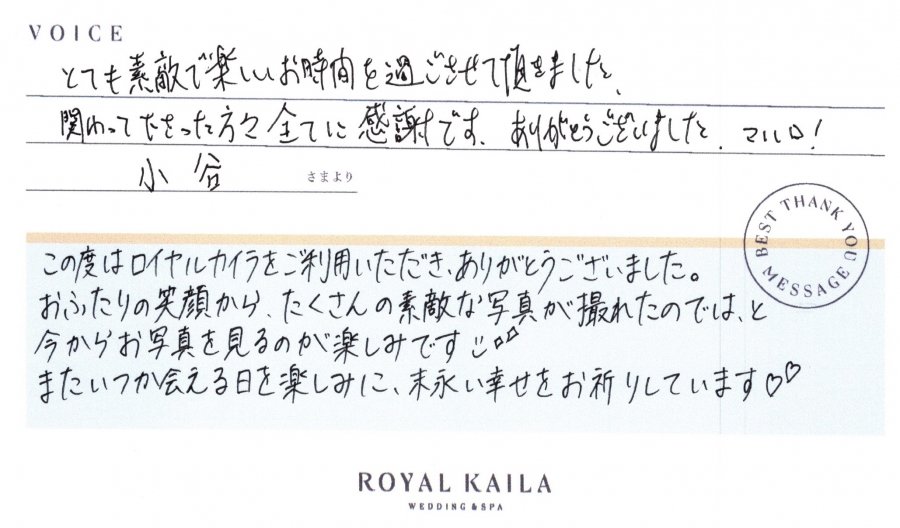 VOICE
とても素敵で楽しいお時間を過ごさせて頂きました。
関わって下さった方々全てに感謝です。ありがとうございました。マハロ!
小谷 さまより
BEST THANK YOU MESSAGE
この度はロイヤルカイラをご利用いただき、ありがとうございました。
おふたりの笑顔から、たくさんの素敵な写真が撮れたのでは、と
今からお写真を見るのが楽しみです
またいつか会える日を楽しみに、末永い幸せをお祈りしています♡♡
ROYAL KAILA
WEDDING & SPA